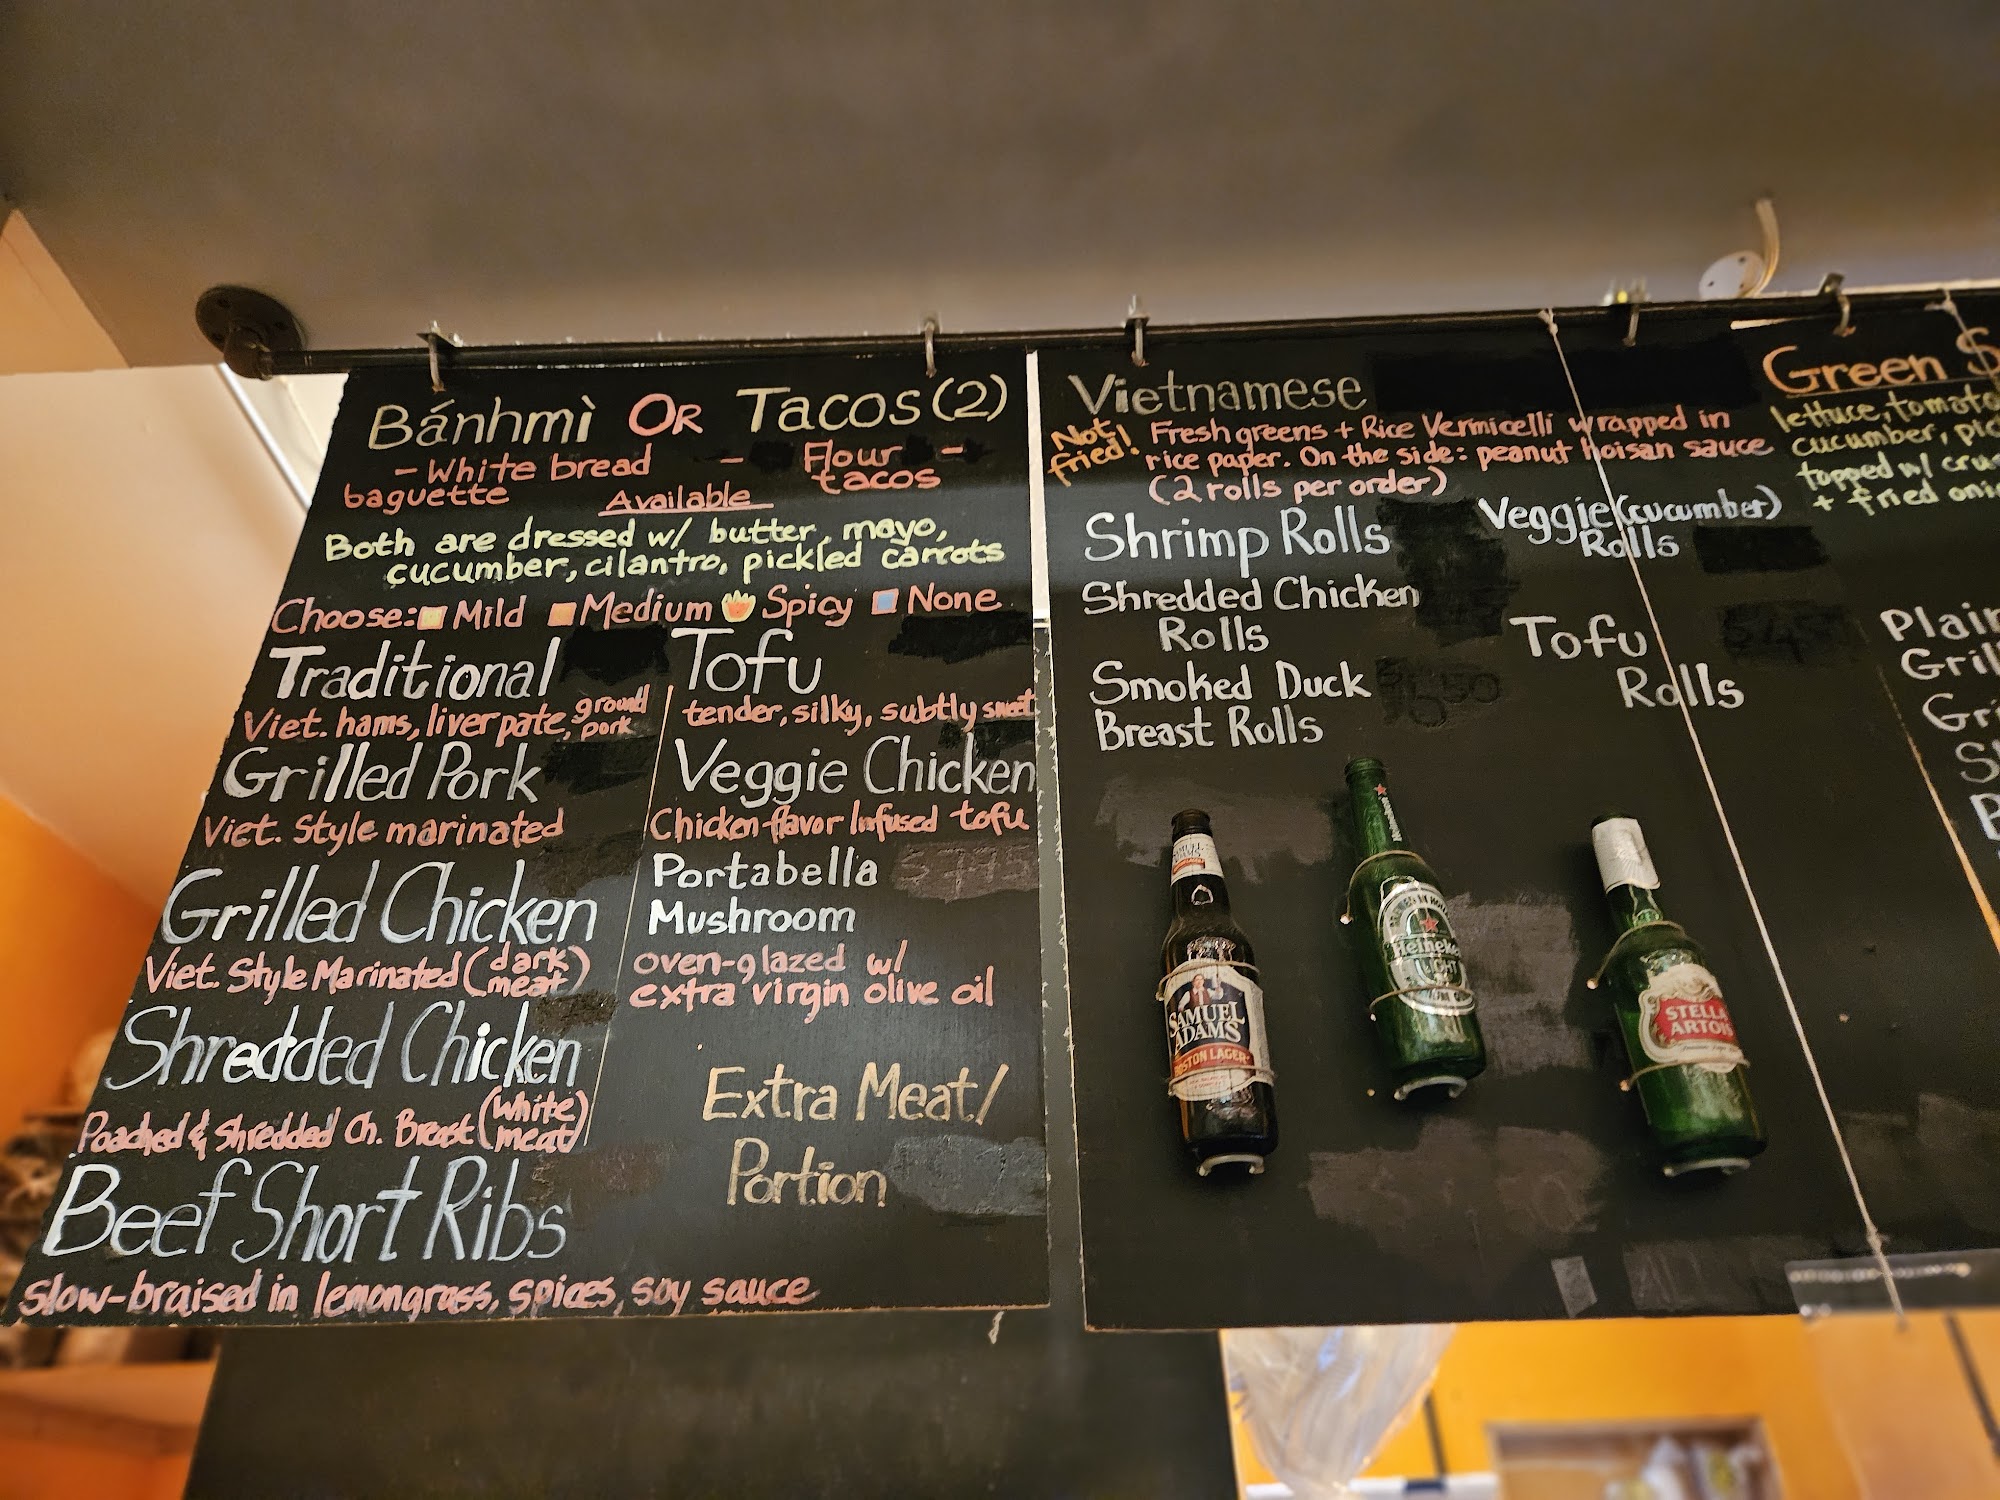 Bánhmì OR Tacos (2)
- White bread - Flour -
baguette tacos
Available
Both are dressed w/ butter, mayo,
cucumber, cilantro, pickled carrots
Choose: Mild Medium Spicy None
Traditional
Viet. hams, liver pate, ground
pork
Grilled Pork
Viet. Style marinated
Grilled Chicken
Viet. Style Marinated (dark
meat)
Shredded Chicken
Poached & Shredded Ch. Breast (white
meat)
Beef Short Ribs
slow-braised in lemongrass, spices, soy sauce
Tofu
tender, silky, subtly sweet
Veggie Chicken
Chicken flavor Infused tofu
Portabella
Mushroom
oven-glazed w/
extra virgin olive oil
Extra Meat/
Portion
Vietnamese
Not
fried!
Fresh greens + Rice Vermicelli wrapped in
rice paper. On the side: peanut hoisan sauce
(2 rolls per order)
Shrimp Rolls
Shredded Chicken
Rolls
Smoked Duck
Breast Rolls
Veggie (cucumber)
Rolls
Tofu
Rolls
SAMUEL
ADAMS
BOSTON LAGER
Heineken
LIGHT
STELLA
ARTOIS
Green
lettuce,
cucumber,
topped w/
+ fried
Plain